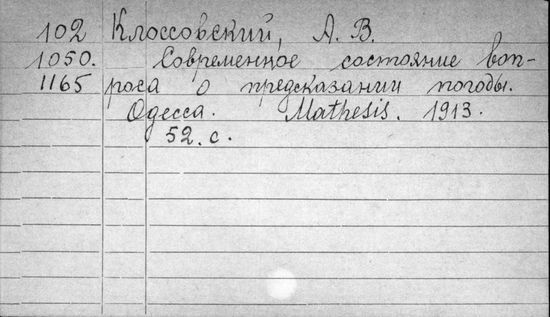 102 Клоссовский, А. В.
1050. Современное состояние воп-
1165 роса о предсказании погоды.
Одесса. Mathesis. 1913.
52. с.